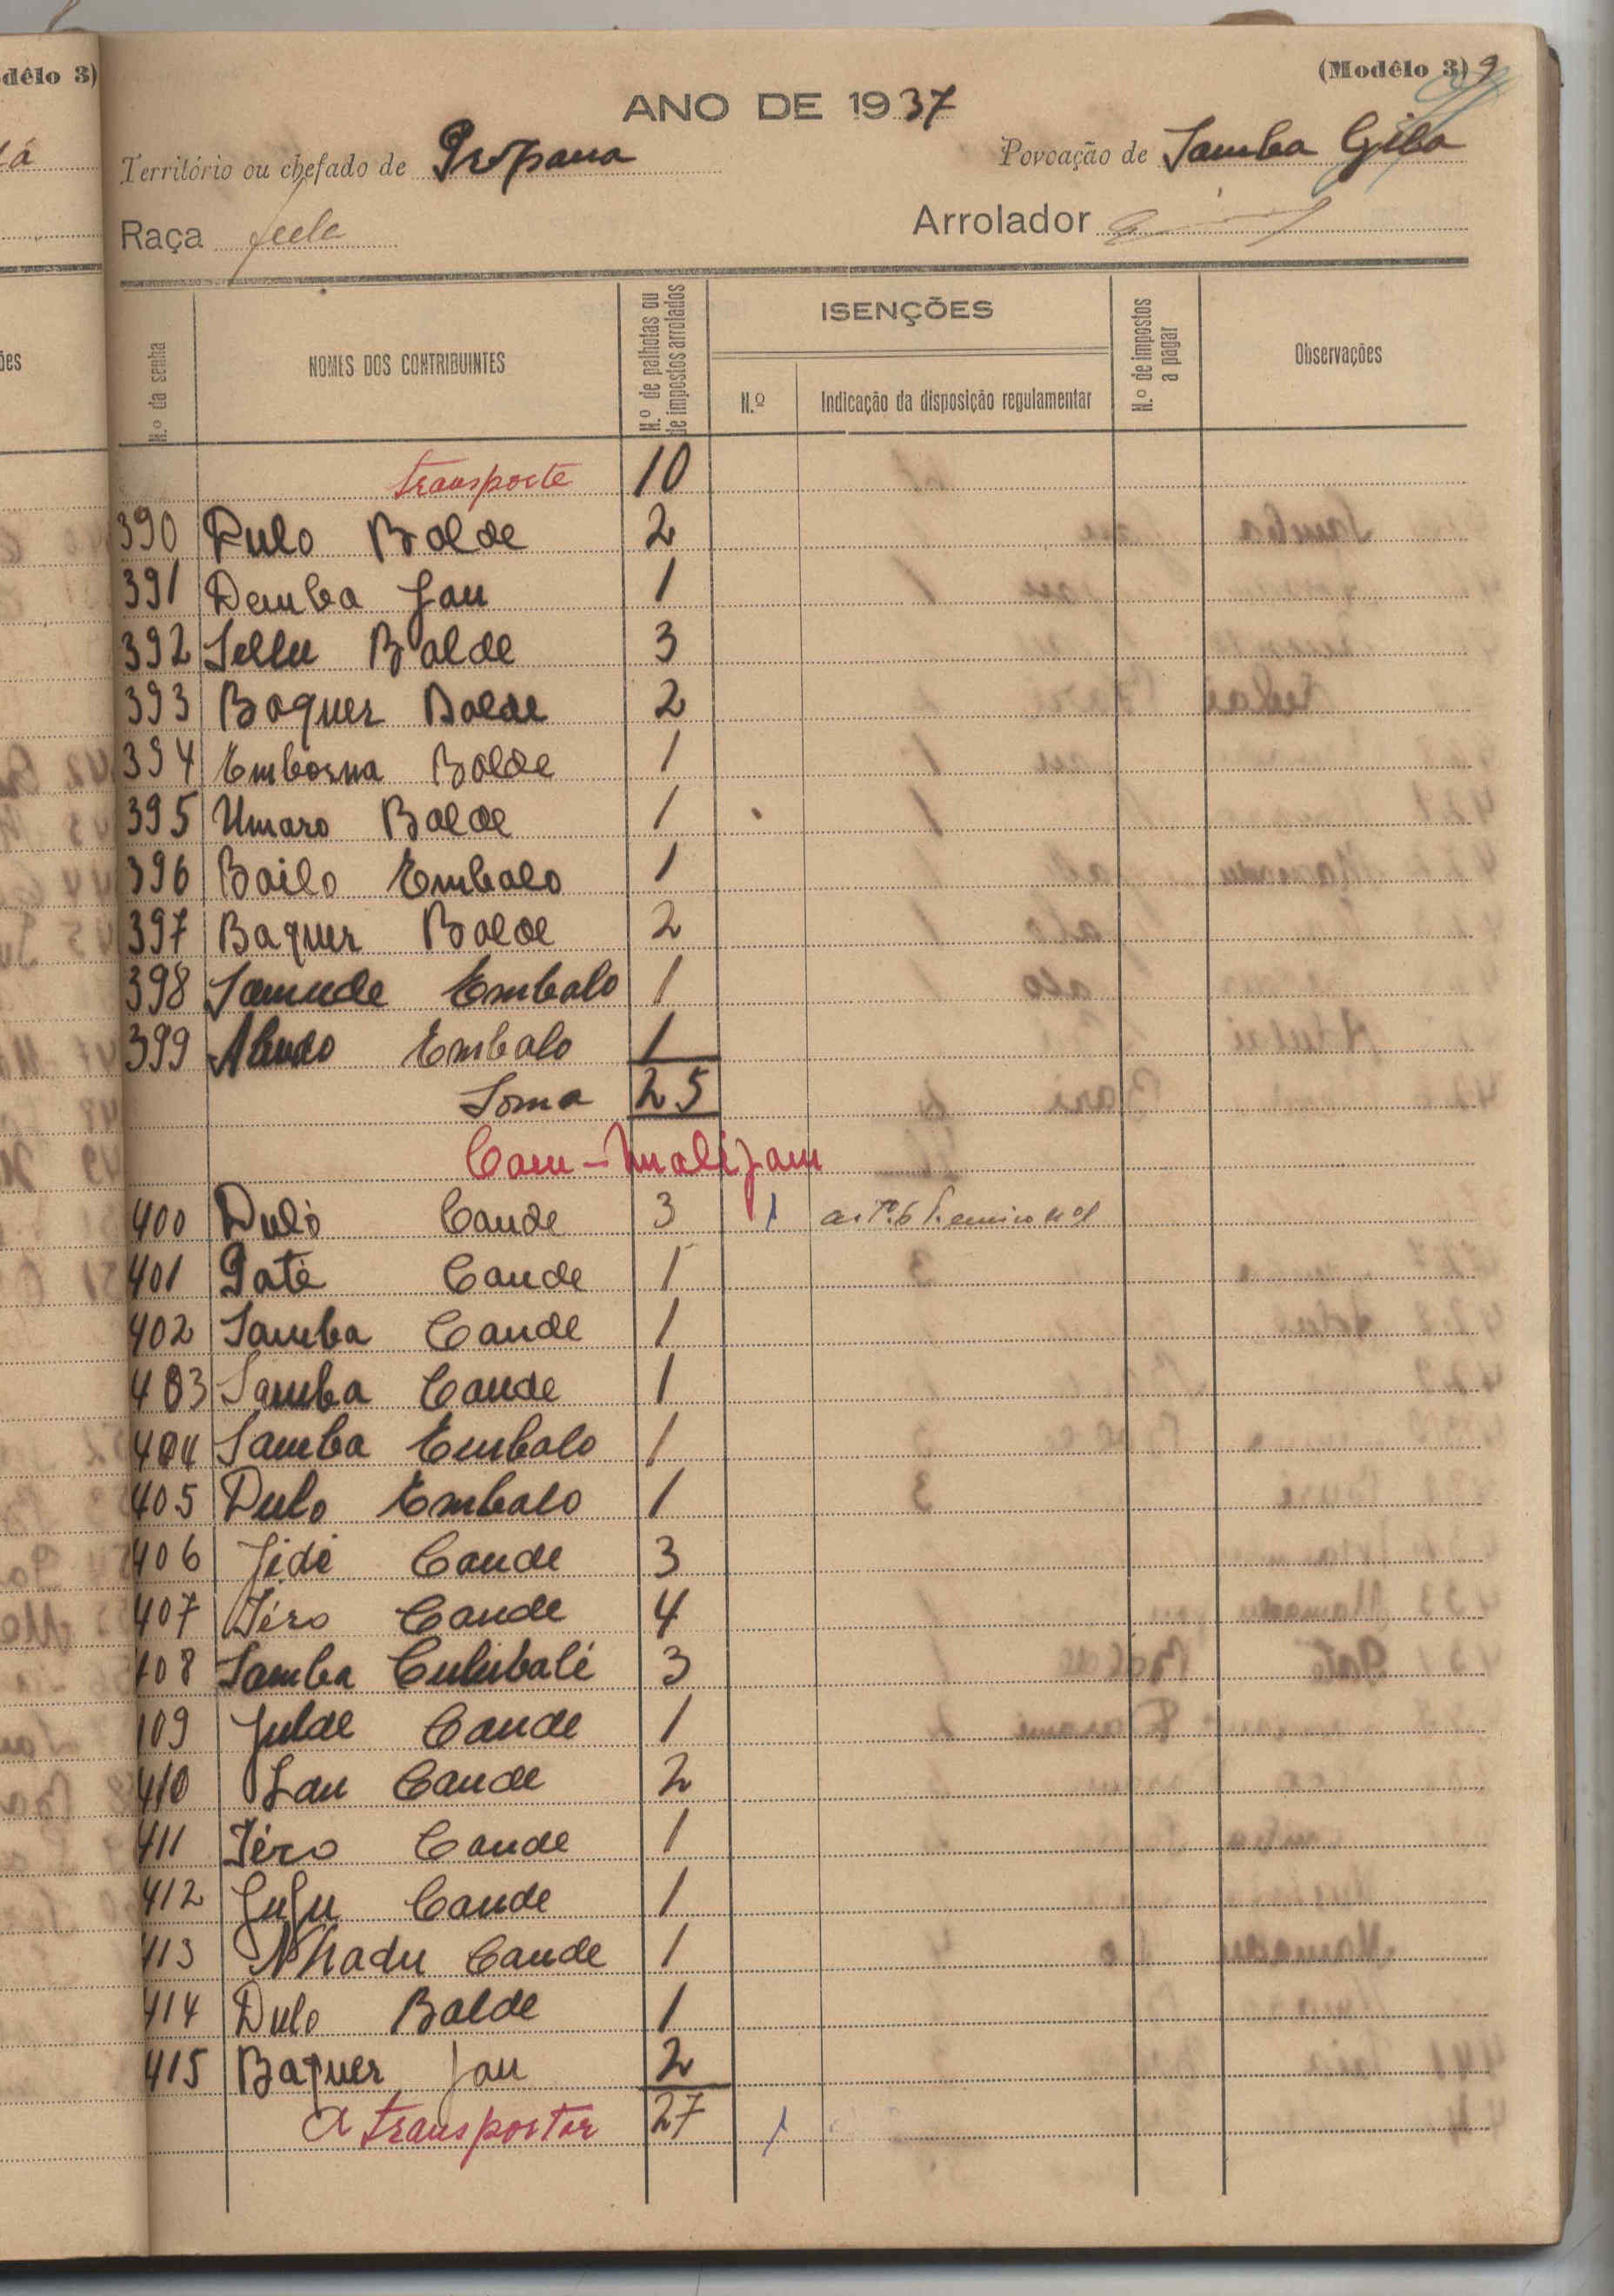 (Modêlo 3) 9
ANO DE 1937
Território ou chefado de Propana
Povoação de Samba Giba
Raça fula
Arrolador
N.º da senha
NOMES DOS CONTRIBUINTES
N.º de palhotas ou de impostos arrolados
ISENÇÕES
N.º
Indicação da disposição regulamentar
N.º de impostos a pagar
Observações
transporte 10
390 Dulo Balde 2
391 Demba Jau 1
392 Sellu Balde 3
393 Baquer Balde 2
394 Balde 1
395 Umaro Balde 1
396 Bailo Embalo 1
397 Baquer Balde 2
398 Samude Embalo 1
399 Embalo 1
Soma 25
Cam-Malijam
400 Duló Cande 3 1
401 Paté Cande 1
402 Samba Cande 1
403 Samba Cande 1
404 Samba Embalo 1
405 Dulo Embalo 1
406 Jidi Cande 3
407 Téro Cande 4
408 Samba Culubali 3
409 Julde Cande 1
410 Lau Cande 2
411 Téro Cande 1
412 Cande 1
413 Nhadu Cande 1
414 Dulo Balde 1
415 Baquer Jau 2
A transportar 27 1